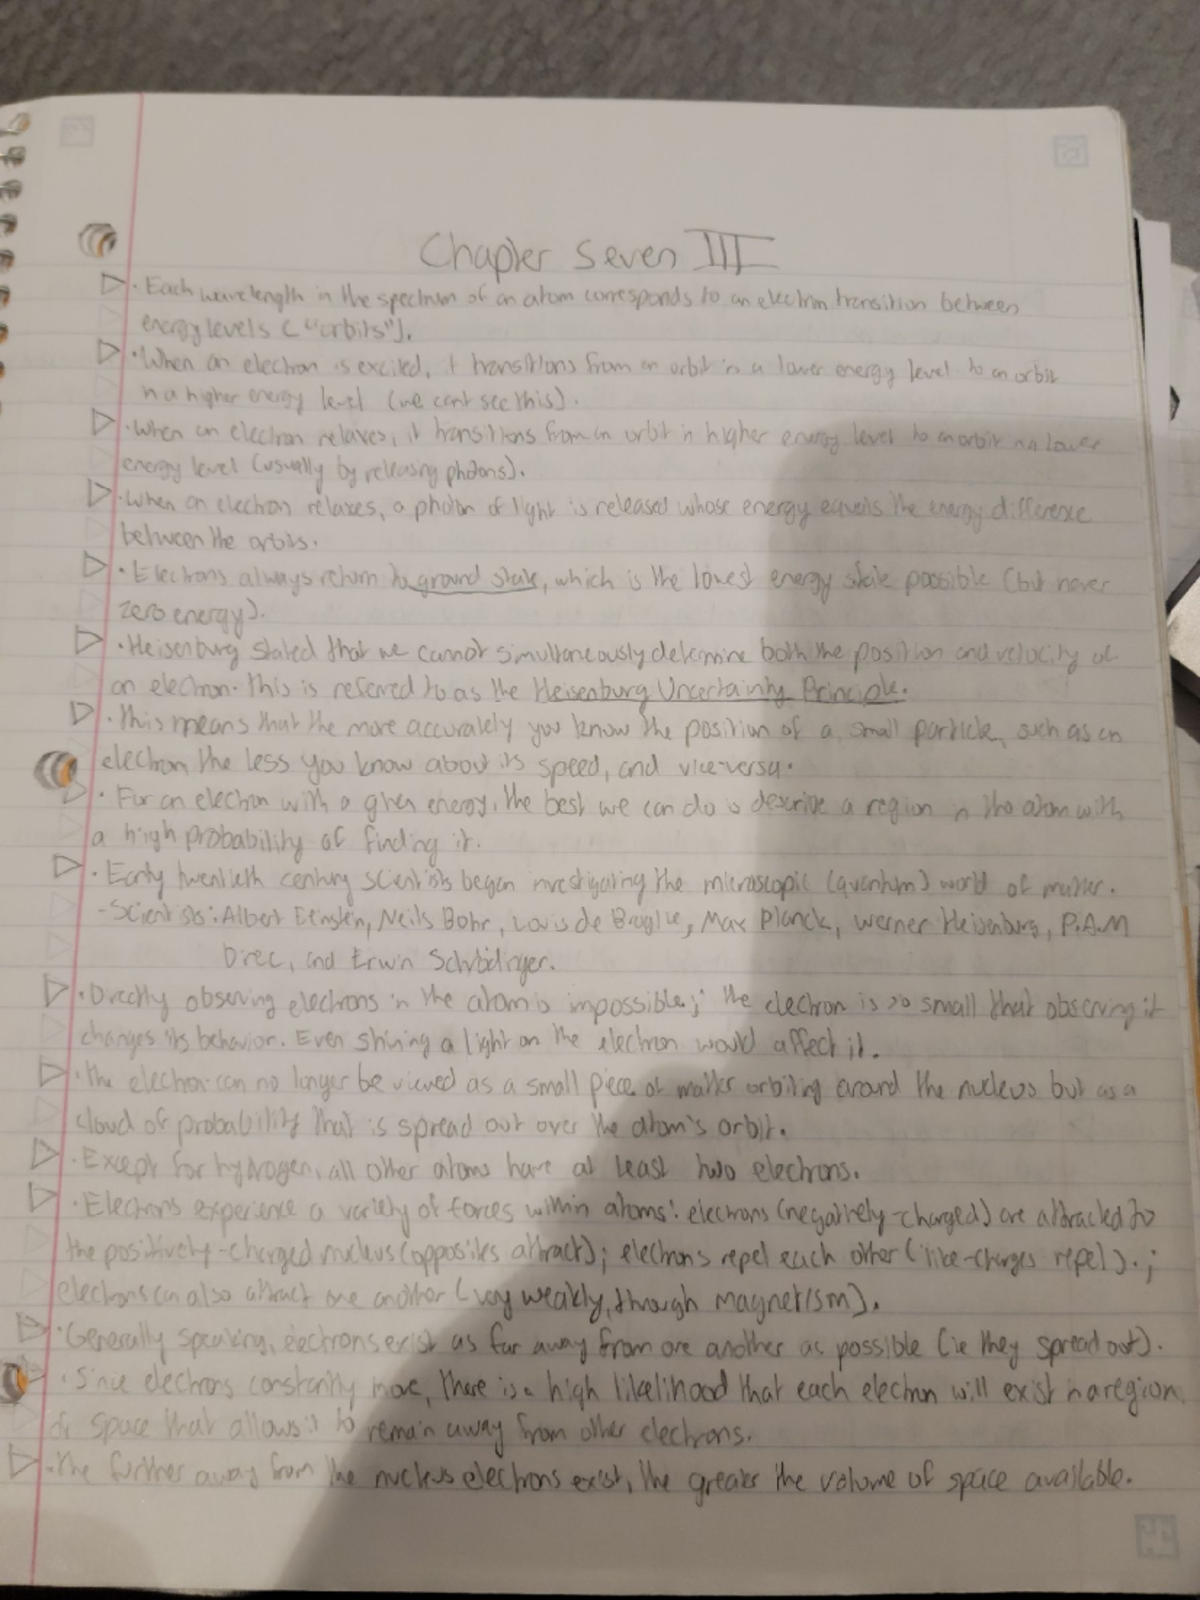 Chapter Seven III
· Each wavelength in the spectrum of an atom corresponds to an electron transition between
energy levels ("orbits").
· When an electron is excited, it transitions from an orbit in a lower energy level to an orbit
in a higher energy level (we cant see this).
· When an electron relaxes, it transitions from an orbit in higher energy level to an orbit in a lower
energy level (usually by releasing photons).
· When an electron relaxes, a photon of light is released whose energy equals the energy difference
between the orbits.
· Electrons always return to ground state, which is the lowest energy state possible (but never
zero energy).
· Heisenburg stated that we cannot simultaneously determine both the position and velocity of
an electron. This is referred to as the Heisenburg Uncertainty Principle.
· This means that the more accurately you know the position of a small particle, such as an
electron, the less you know about its speed, and vice-versa.
· For an electron with a given energy, the best we can do is describe a region in the atom with
a high probability of finding it.
· Early twentieth century scientists began investigating the microscopic (quantum) world of matter.
-Scientists: Albert Einstein, Neils Bohr, Louis de Broglie, Max Planck, Werner Heisenburg, P.A.M
Direc, and Erwin Schrödinger.
· Directly observing electrons in the atom is impossible; the electron is so small that observing it
changes its behavior. Even shining a light on the electron would affect it.
· The electron can no longer be viewed as a small piece of matter orbiting around the nucleus but as a
cloud of probability that is spread out over the atom's orbit.
· Except for hydrogen, all other atoms have at least two electrons.
· Electrons experience a variety of forces within atoms: electrons (negatively-charged) are attracted to
the positively-charged nucleus (opposites attract); electrons repel each other (like-charges repel).;
electrons can also attract one another (very weakly, through magnetism).
· Generally speaking, electrons exist as far away from one another as possible (ie they spread out).
· Since electrons constantly move, there is a high likelihood that each electron will exist in a region
of space that allows it to remain away from other electrons.
· The further away from the nucleus electrons exist, the greater the volume of space available.